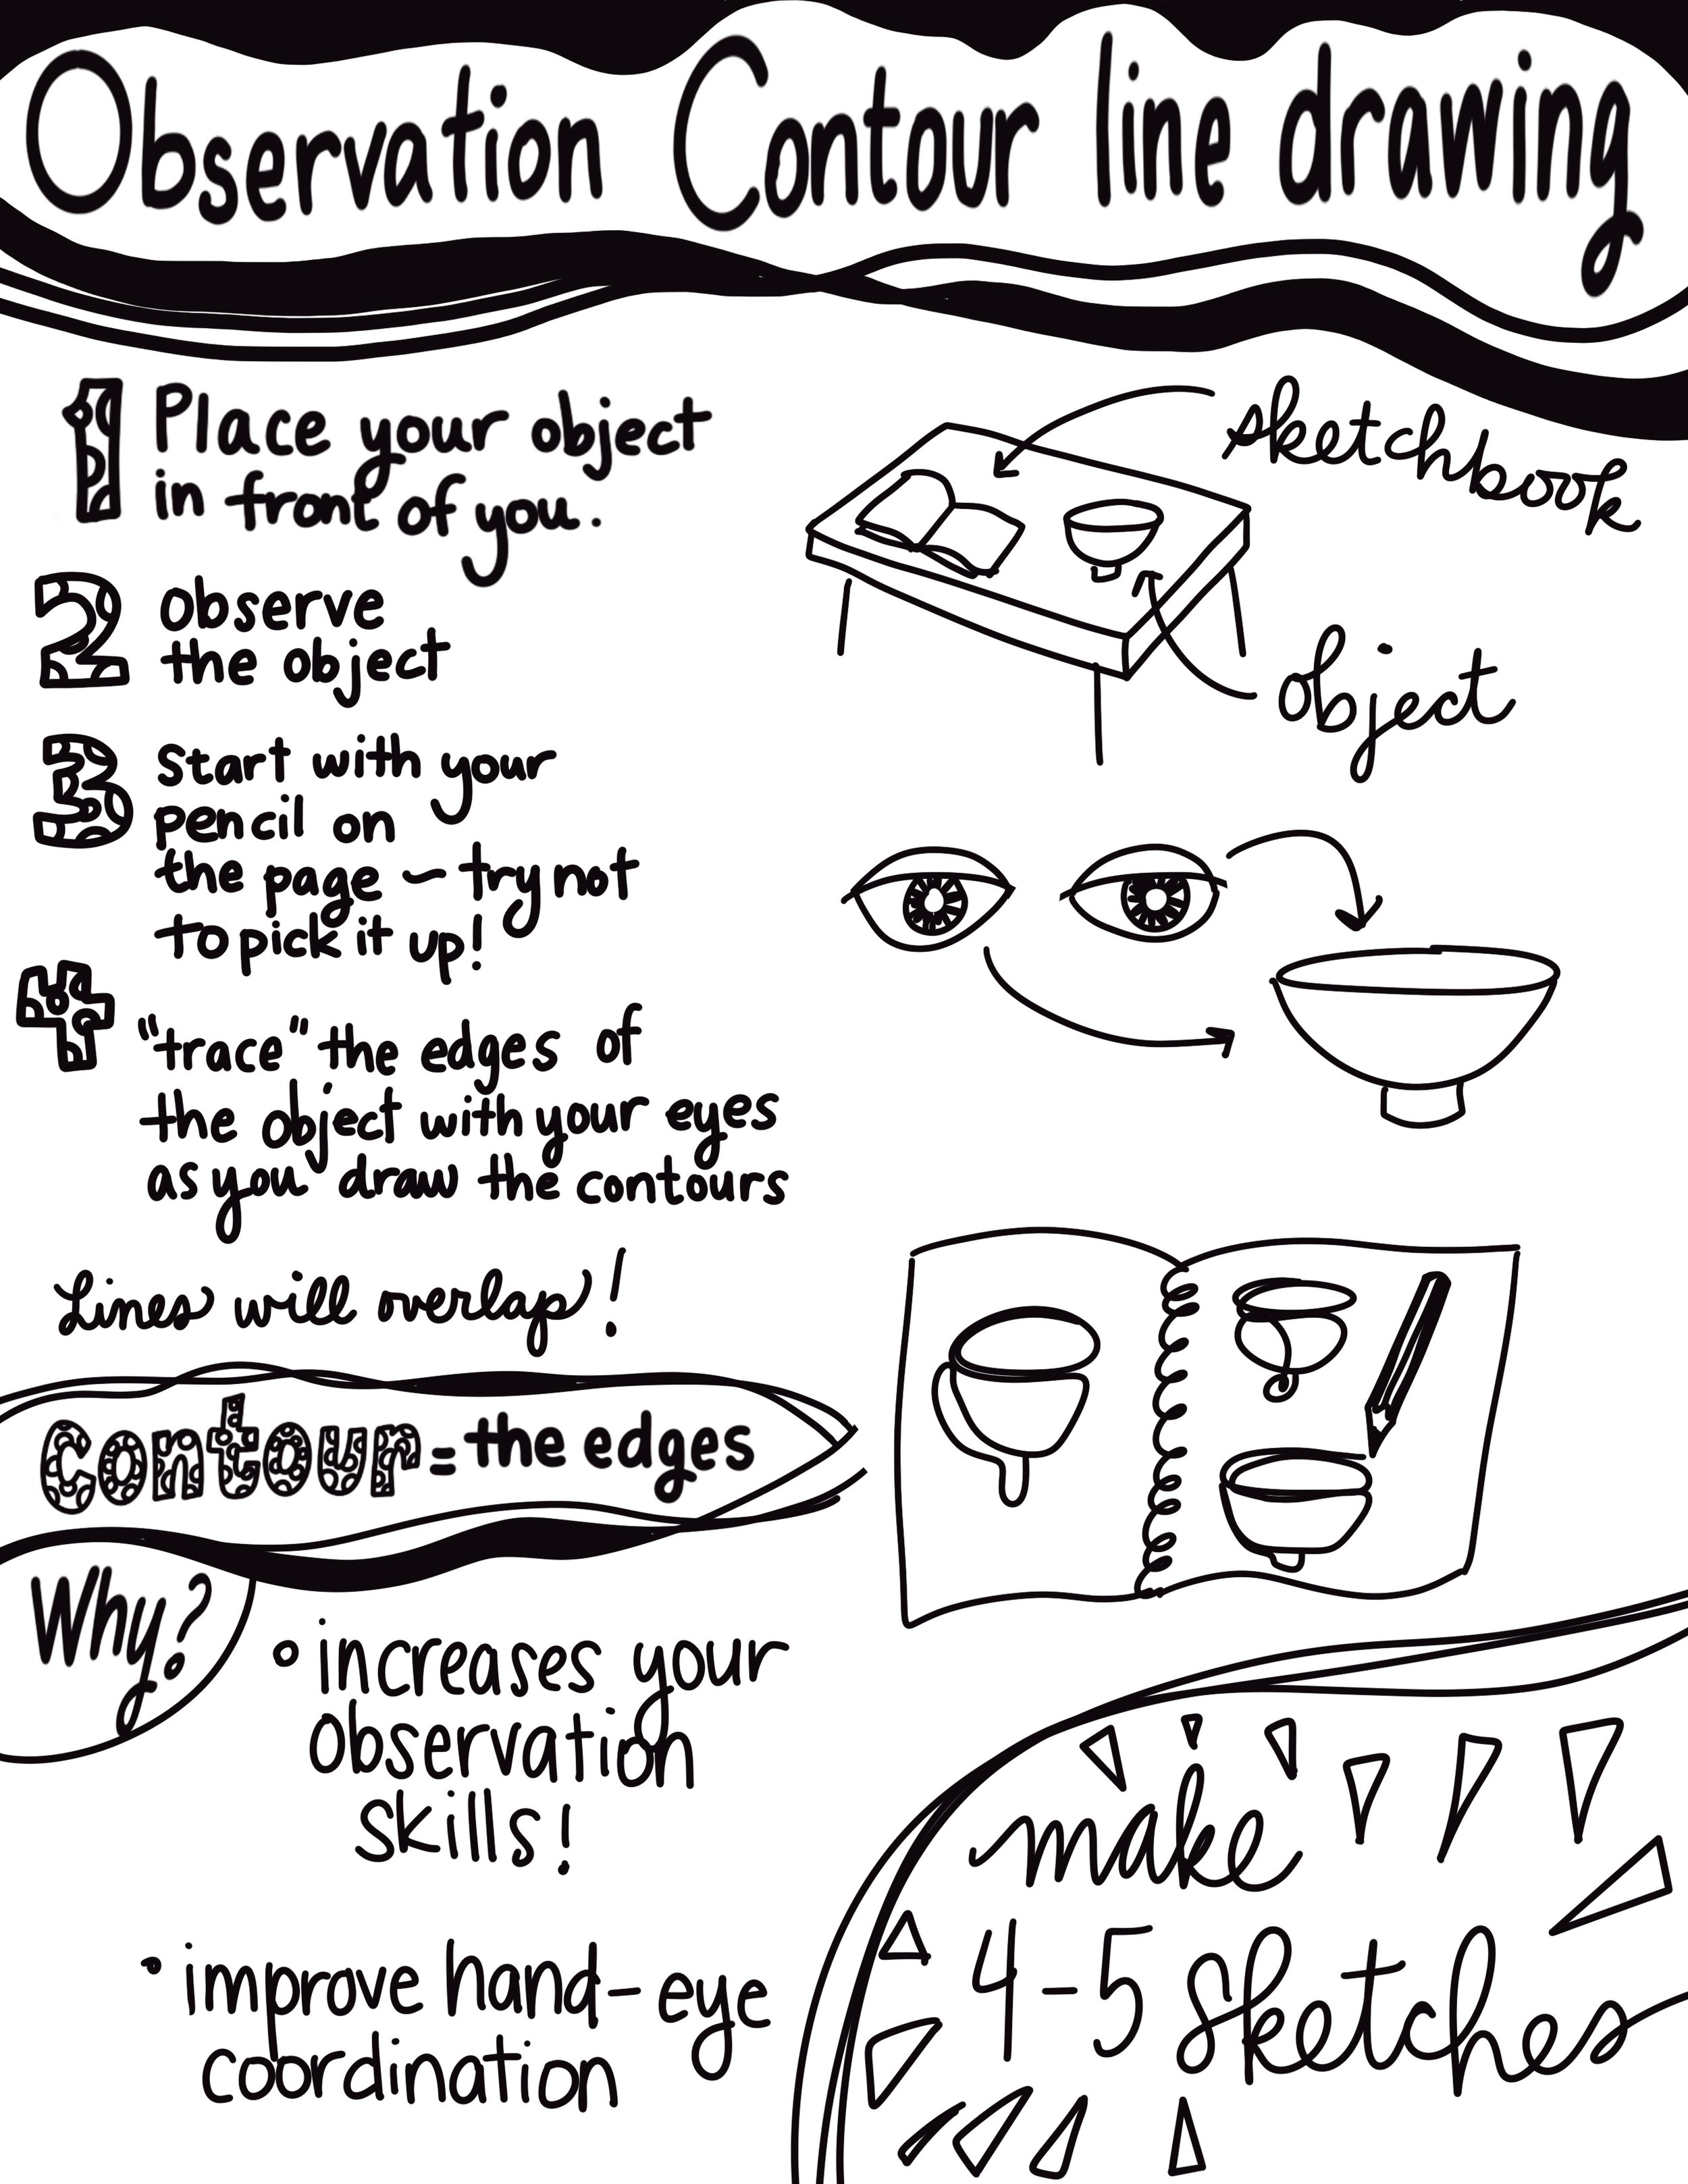 Observation Contour line drawing
1 Place your object
in front of you.
sketchbook
2 observe
the object
object
3 Start with your
pencil on
the page – try not
to pick it up!
4 "trace" the edges of
the object with your eyes
as you draw the contours
Lines will overlap!
contour = the edges
Why?
• increases your
observation
skills!
• improve hand-eye
coordination
make
4-5 sketches